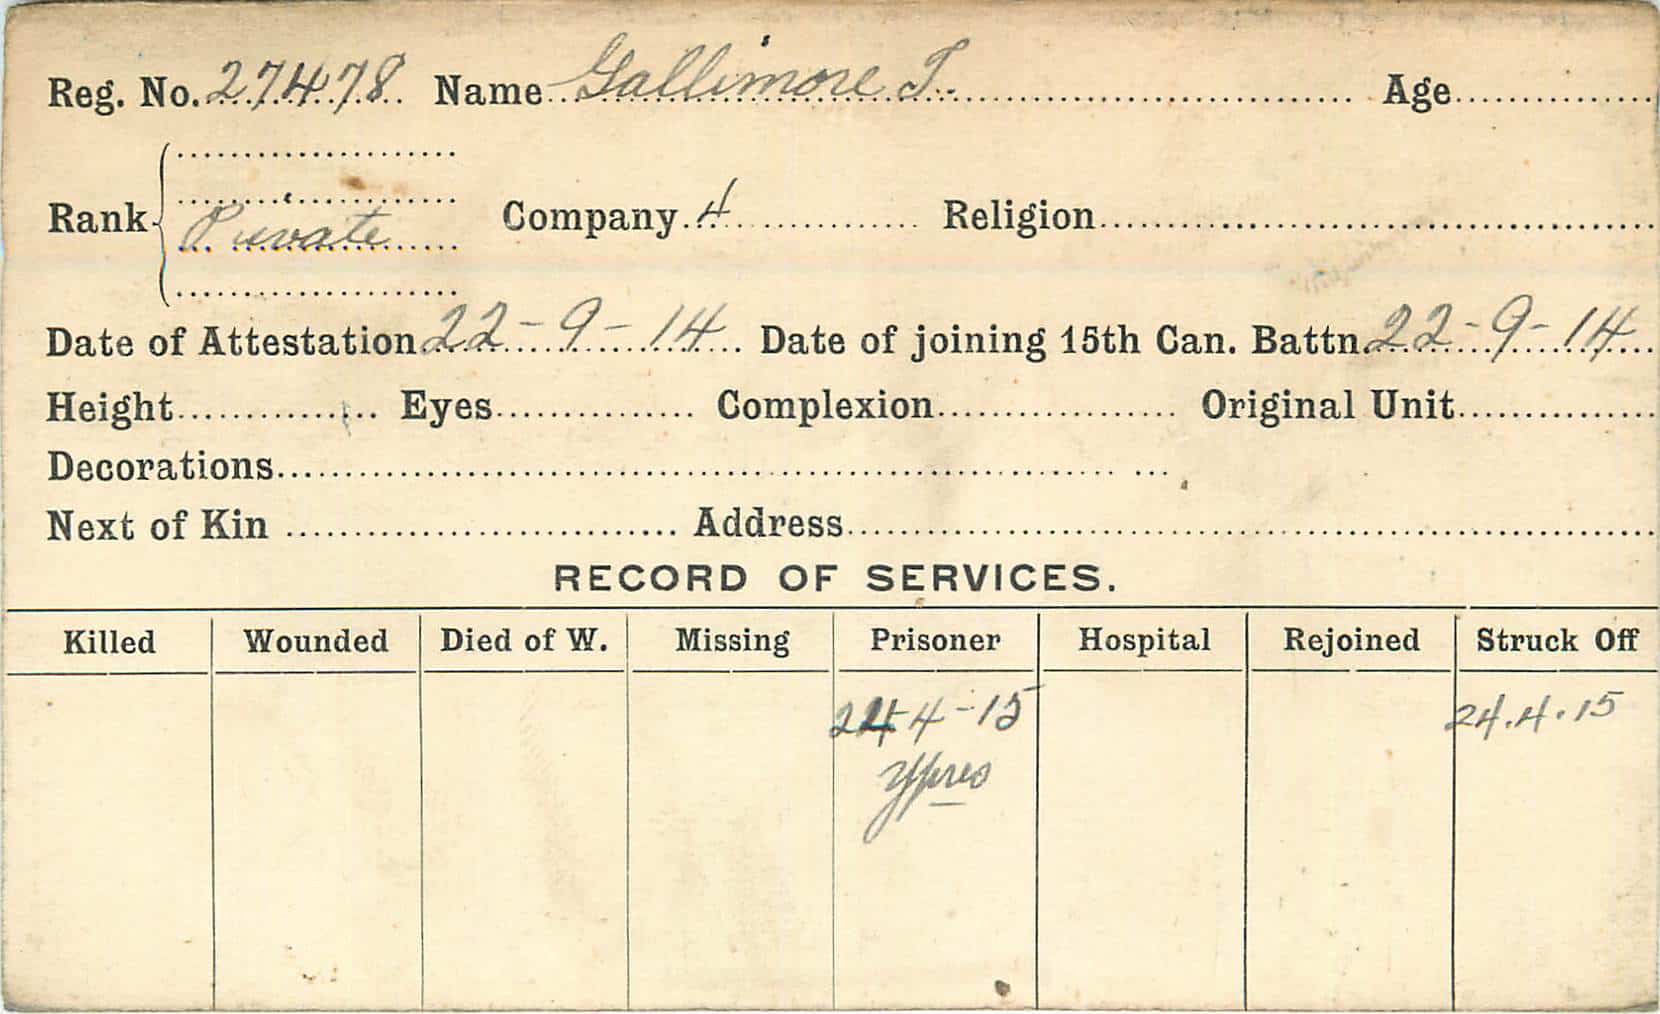 Reg. No. 27478 Name Gallimore T. Age
Rank Private Company 4 Religion
Date of Attestation 22-9-14 Date of joining 15th Can. Battn. 22-9-14
Height Eyes Complexion Original Unit
Decorations
Next of Kin Address
RECORD OF SERVICES.
Killed Wounded Died of W. Missing Prisoner Hospital Rejoined Struck Off
24 4-15 24.4.15
Ypres